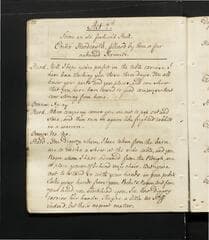 Act 2d
Scene an old fashion'd House.
Enter Hardcastle, followed by three or four
awkward Servants.
Hard. Well I hope you're perfect in the table exercise I
have been teaching you these three days. You all
know your posts and your places, and can shew
that you have been used to good company, without
ever stirring from home.
Omnes. Ay, ay.
Hard. When company comes you are not to pop out and
stare, and then run in again, like frighted rabbits
in a warren.
Omnes. No, no.
Hard. You, Diggory, whom I have taken from the barn
are to make a shew at the side table, and you
Roger, whom I have advanced from the Plough, are
to place yourself behind my chair. But you're
not to stand so, with your hands in your pockets.
Take your hands from your Pockets Roger, and from
your head, you blockhead you. See how Diggory
carries his hands. They're a little too stiff
indeed, but that's no great matter.